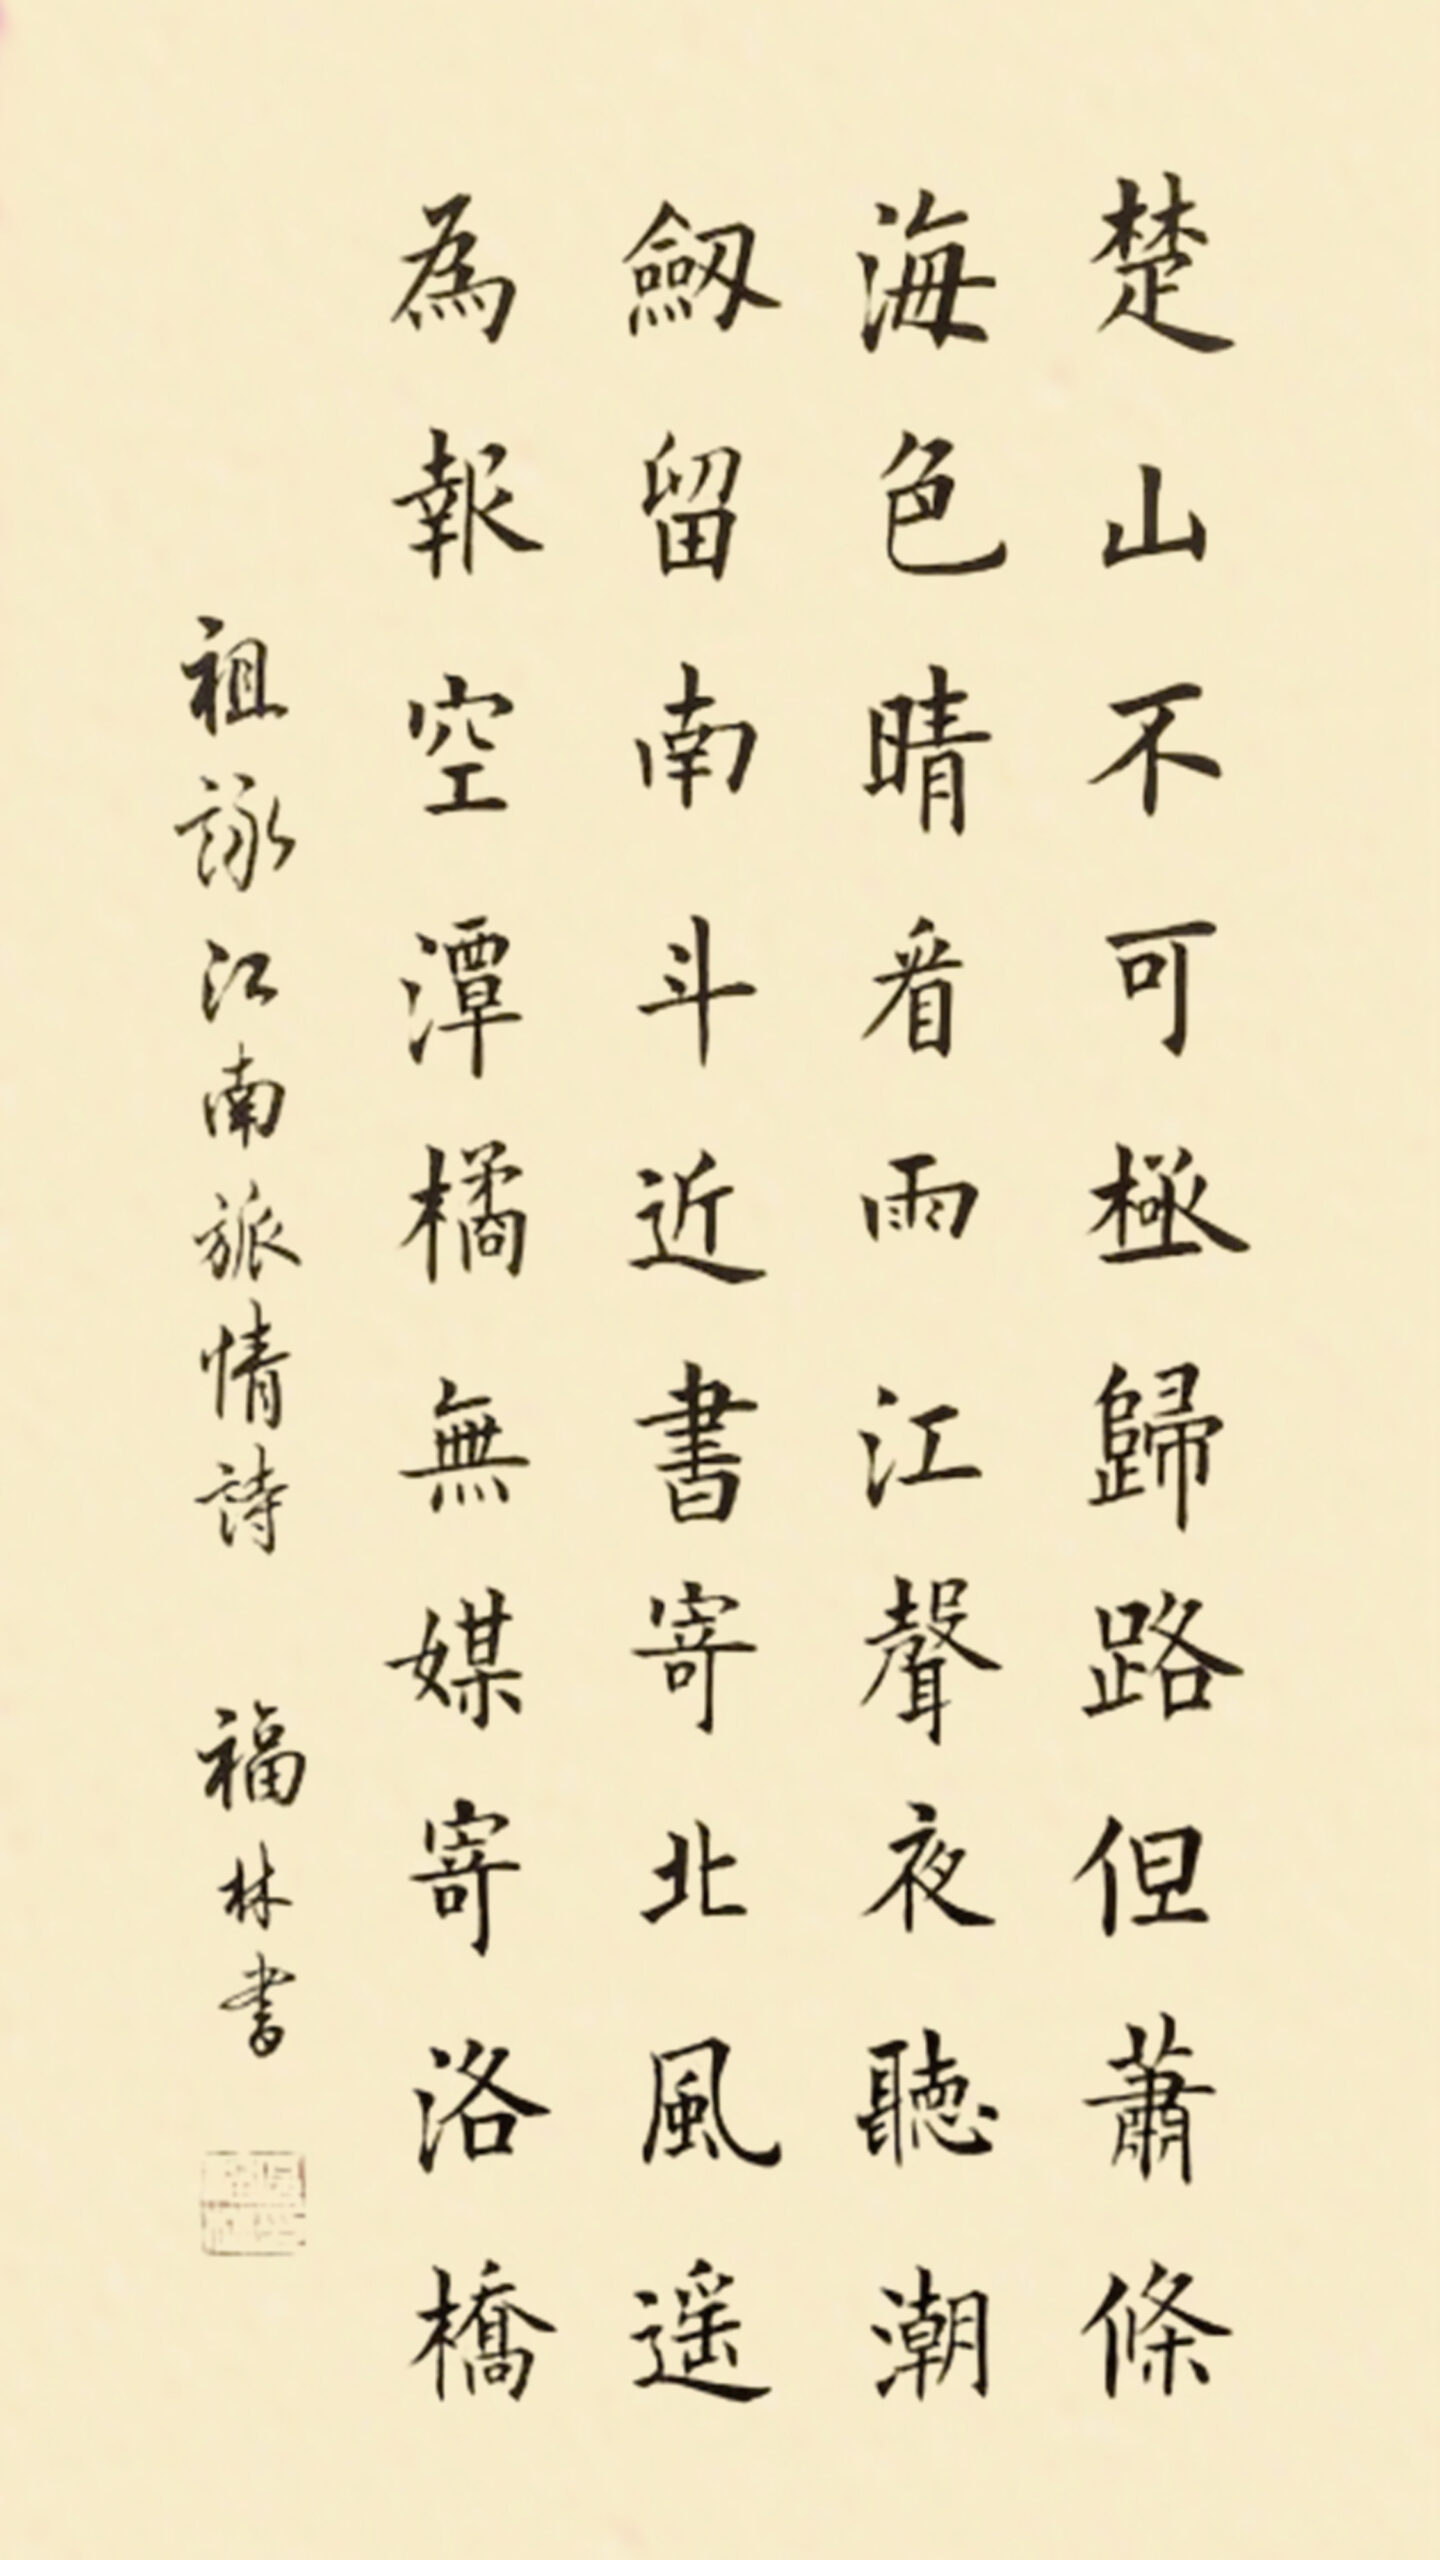 楚山不可極歸路但蕭條
海色晴看雨江聲夜聽潮
劒留南斗近書寄北風遥
為報空潭橘無媒寄洛橋
祖詠江南旅情詩 福林書